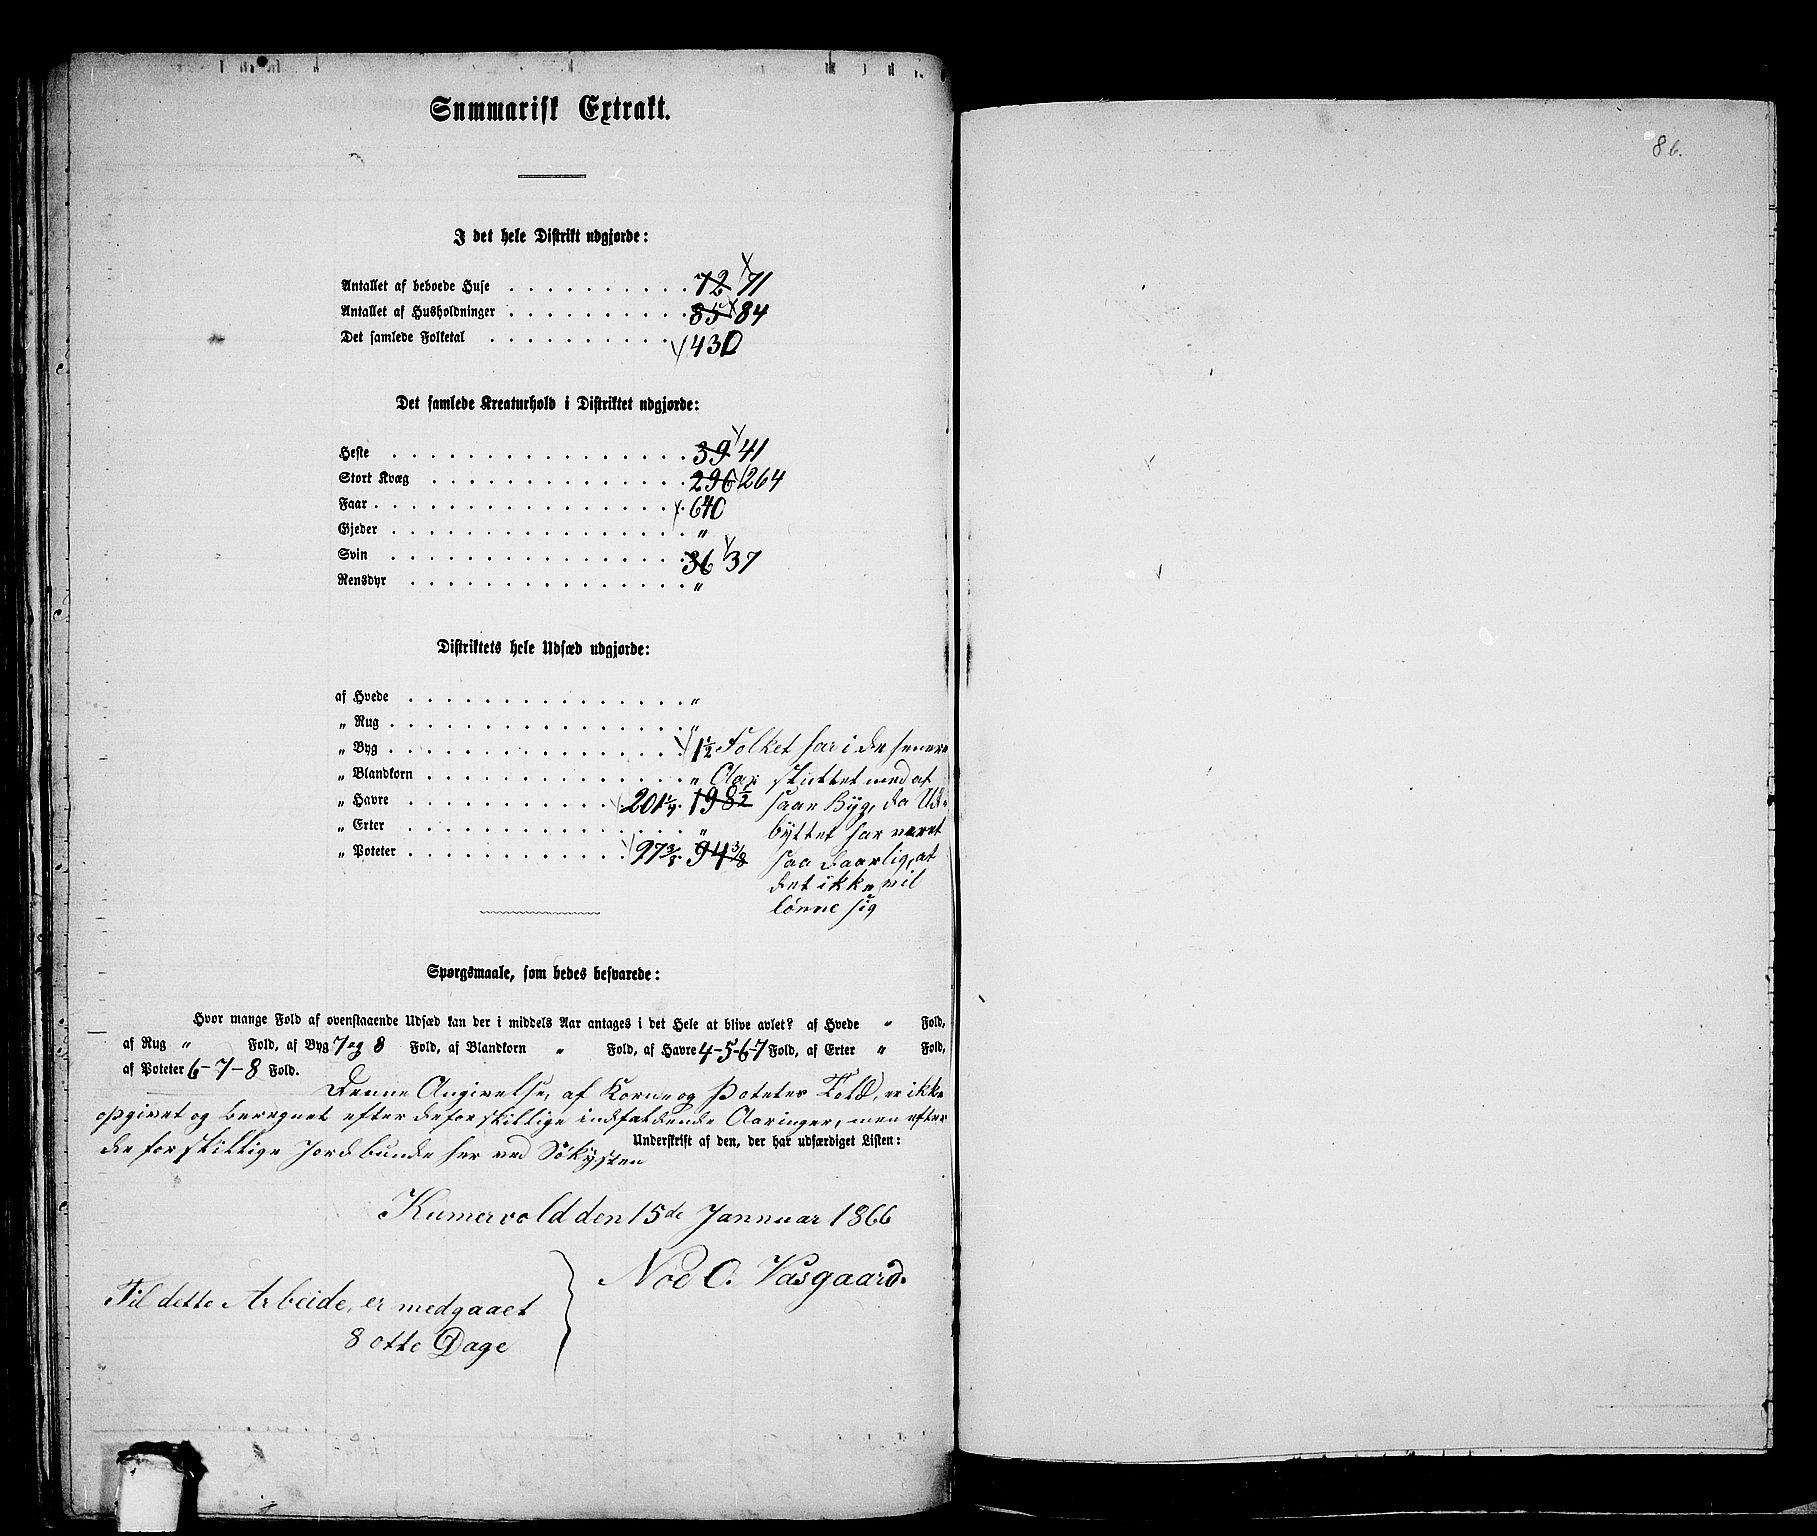 Summarisk Extrakt.
I det hele Distrikt udgjorde:
Antallet af beboede Huse . . . . . . . . . . 72 71
Antallet af Husholdninger . . . . . . . . . . 85 84
Det samlede Folketal . . . . . . . . . . 430
Det samlede Kreaturhold i Distriktet udgjorde:
Heste . . . . . . . . . . 39 41
Stort Kvæg . . . . . . . . . . 296 264
Faar . . . . . . . . . . 640
Gjeder . . . . . . . . . . "
Svin . . . . . . . . . . 36 37
Rensdyr . . . . . . . . . . "
Distriktets hele Udsæd udgjorde:
af Hvede . . . . . . . . . . "
„ Rug . . . . . . . . . . "
„ Byg . . . . . . . . . . 1½ Folket har i de senere
„ Blandkorn . . . . . . . . . . " Aar sluttet med at
„ Havre . . . . . . . . . . 201 198½ saae Byg, da Ud-
„ Erter . . . . . . . . . . " byttet har været
„ Poteter . . . . . . . . . . 97 94⅜ saa daarlig, at
det ikke vil
lönne sig
Spørgsmaale, som bedes besvarede:
Hvor mange Fold af ovenstaaende Udsæd kan der i middels Aar antages i det Hele at blive avlet? af Hvede " Fold,
af Rug " Fold, af Byg 7 og 8 Fold, af Blandkorn " Fold, af Havre 4-5-6-7 Fold, af Erter " Fold,
af Poteter 6-7-8 Fold.
Denne Angivelse, af Korn og Poteter Fold, er ikke
opgivet og beregnet efter de forskillige indfaldende Aaringer, men efter
de forskillige Jordbunde her ved Sökysten
Underskrift af den, der har udfærdiget Listen:
Kumervold den 15de Jannuar 1866
Noe O. Vasgaard.
Til dette Arbeide, er medgaaet
8 otte Dage
86.